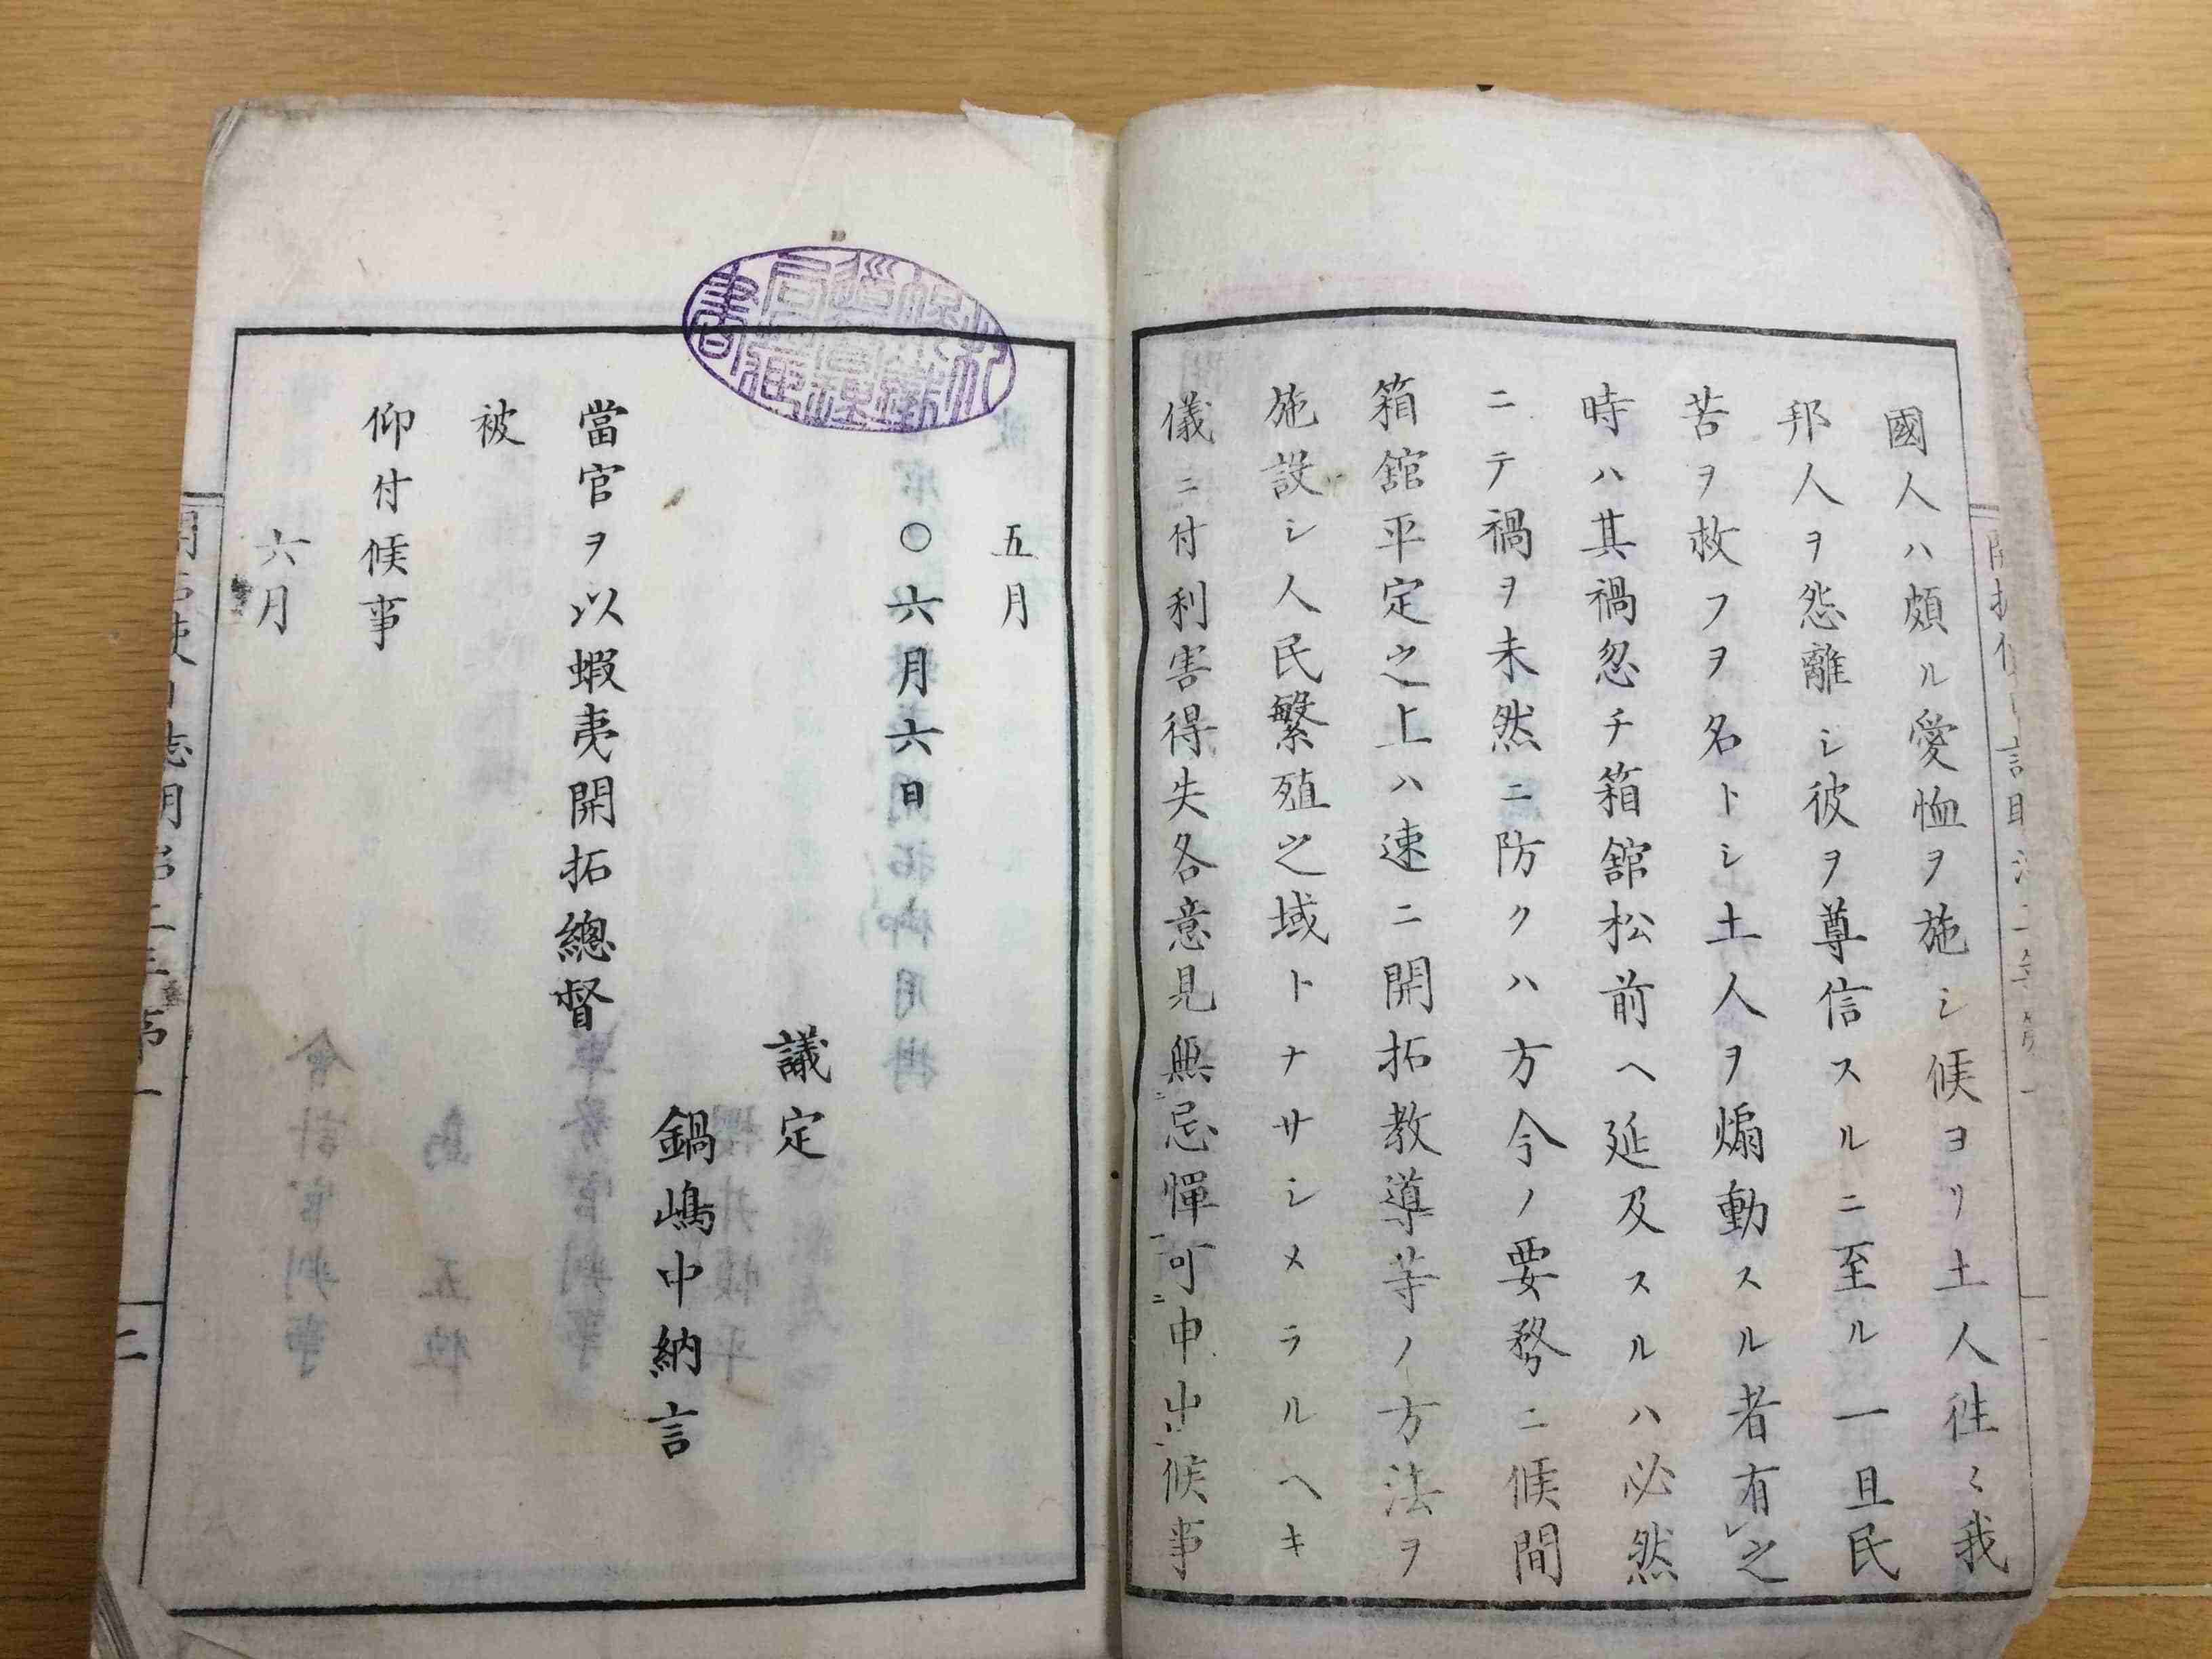 國人ハ頗ル愛恤ヲ施シ候ヨリ土人徃々我
邦人ヲ怨離シ彼ヲ尊信スルニ至ル一旦民
苦ヲ救フヲ名トシ土人ヲ煽動スル者有レ之
時ハ其禍忽チ箱舘松前ヘ延及スルハ必然
ニテ禍ヲ未然ニ防クハ方今ノ要務ニ候間
箱舘平定之上ハ速ニ開拓教導等ノ方法ヲ
施設シ人民繁殖之域トナサシメラルヘキ
儀ニ付利害得失各意見無ニ忌憚一可ニ申出候事
五月
○六月六日
議定
鍋嶋中納言
當官ヲ以蝦夷開拓總督
被
仰付候事
六月
二